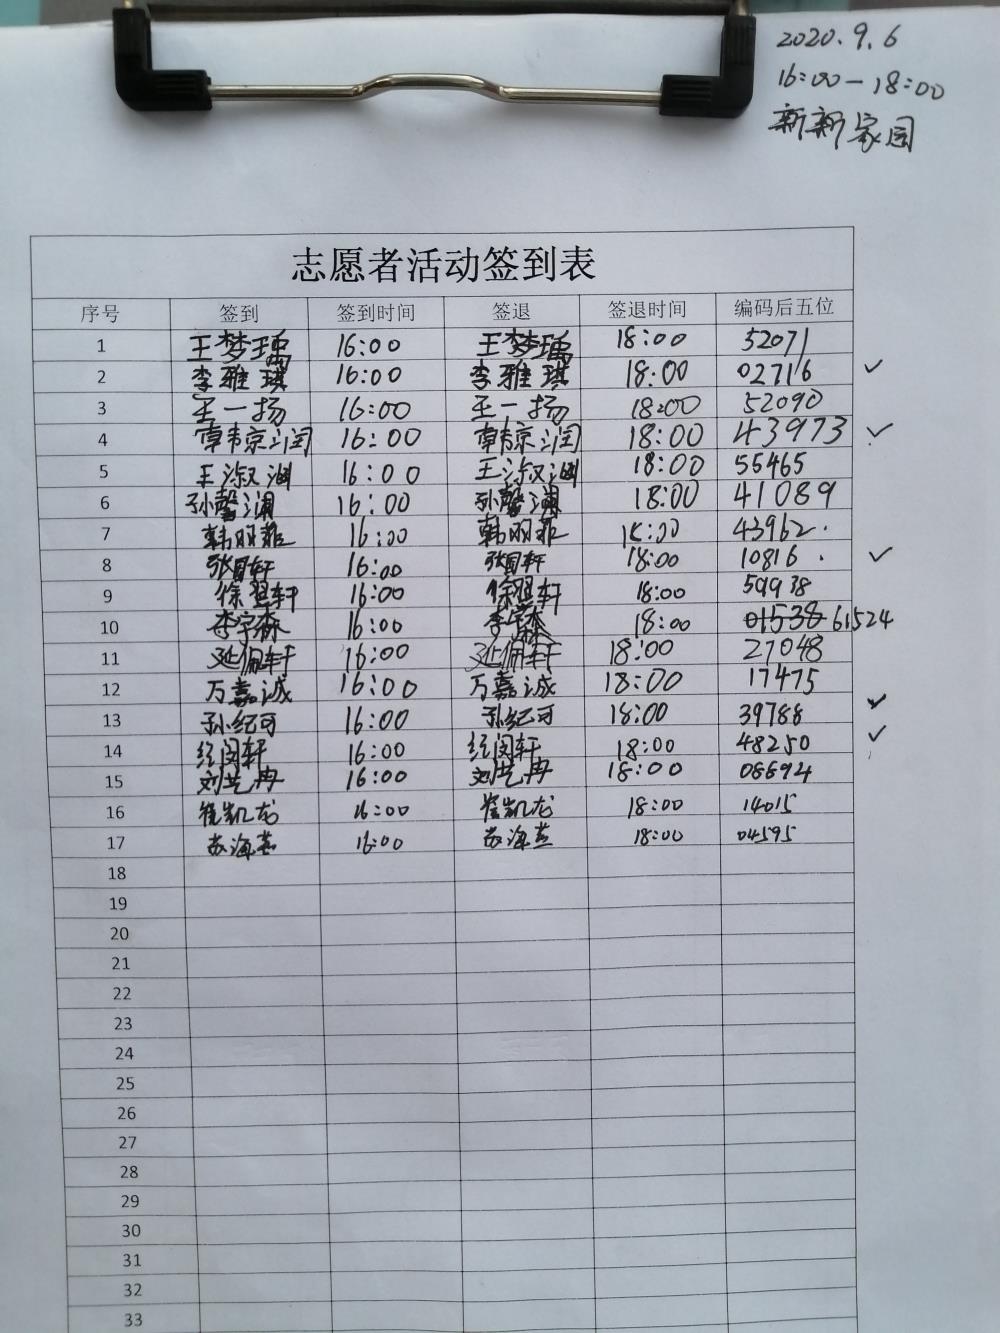 2020.9.6
16:00-18:00
新新家园
志愿者活动签到表
序号 签到 签到时间 签退 签退时间 编码后五位
1 王梦瑀 16:00 王梦瑀 18:00 52071
2 李雅琪 16:00 李雅琪 18:00 02716 ✓
3 王一扬 16:00 王一扬 18:00 52090
4 韩京润 16:00 韩京润 18:00 43973 ✓
5 王淑渊 16:00 王淑渊 18:00 55465
6 孙馨澜 16:00 孙馨澜 18:00 41089
7 韩羽菲 16:00 韩羽菲 18:00 43962.
8 张国轩 16:00 张国轩 18:00 10816. ✓
9 徐翌轩 16:00 徐翌轩 18:00 59938
10 李宇森 16:00 李宇森 18:00 01538 61524
11 延佩轩 16:00 延佩轩 18:00 27048
12 万嘉诚 16:00 万嘉诚 18:00 17475
13 孙纪可 16:00 孙纪可 18:00 39788 ✓
14 闵轩 16:00 闵轩 18:00 48250 ✓
15 刘艺冉 16:00 刘艺冉 18:00 08694
16 崔凯龙 16:00 崔凯龙 18:00 14015
17 苏海燕 16:00 苏海燕 18:00 04595
18
19
20
21
22
23
24
25
26
27
28
29
30
31
32
33